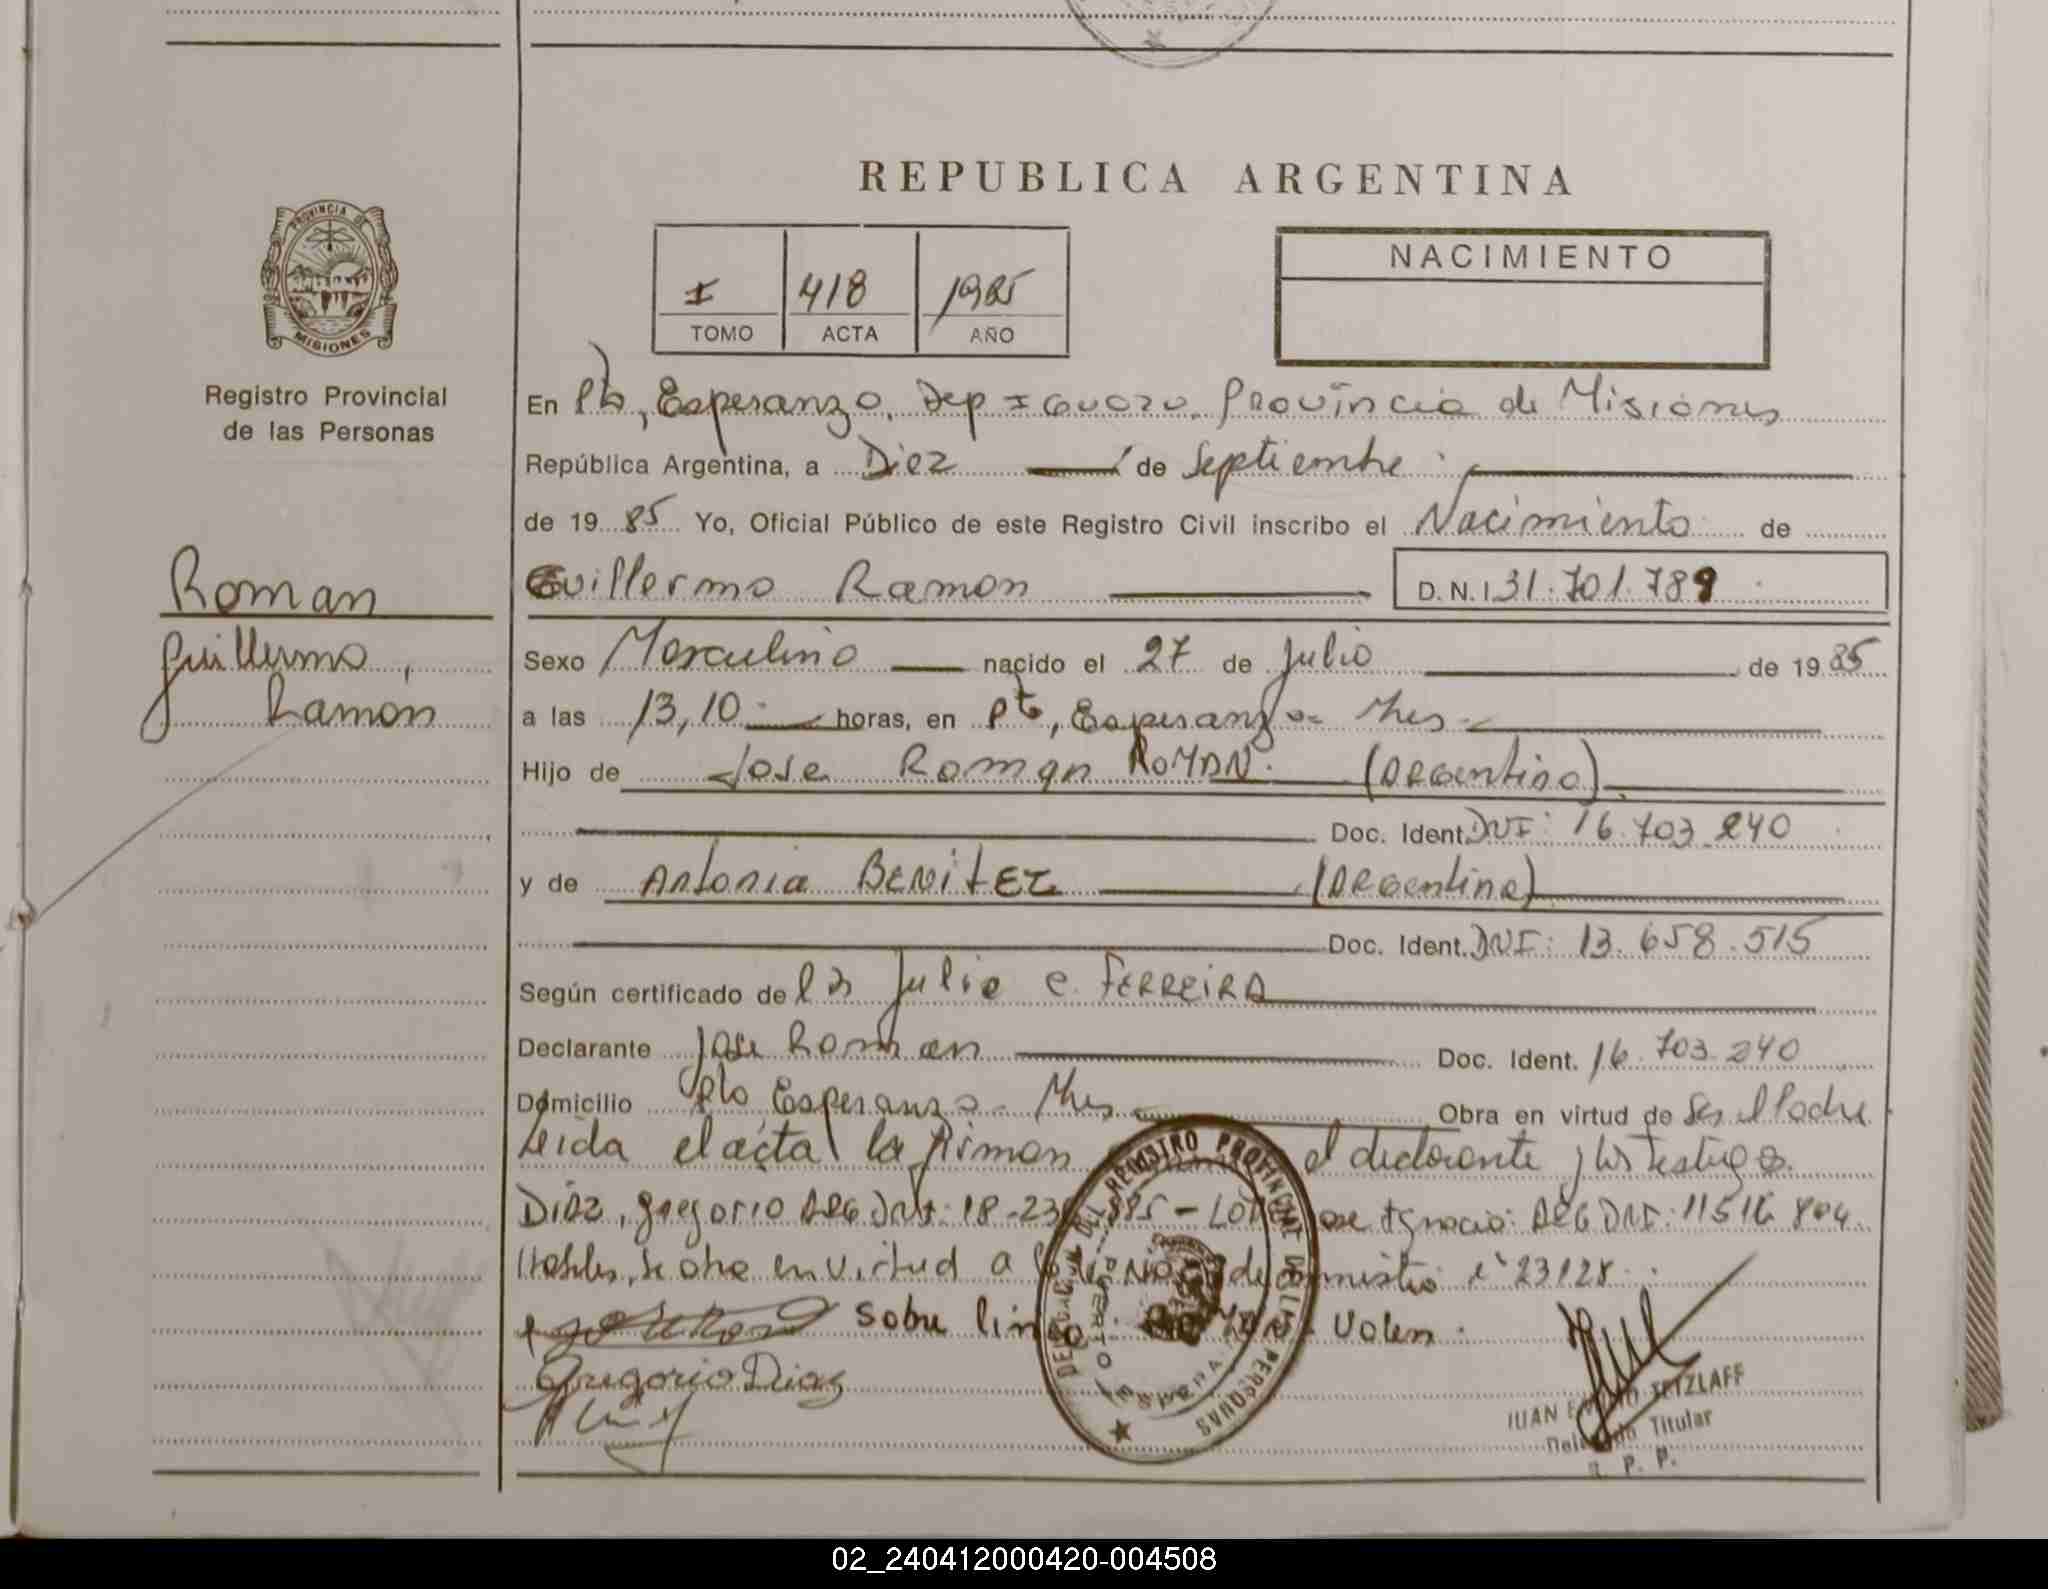 REPUBLICA ARGENTINA
PROVINCIA DE
MISIONES
Registro Provincial
de las Personas
I 418 1985
TOMO ACTA AÑO
NACIMIENTO
En Pto, Esperanza, Dep Iguazu. Provincia de Misiones
República Argentina, a Diez de Septiembre
de 1985 Yo, Oficial Público de este Registro Civil inscribo el Nacimiento de
Roman
Guillermo Ramon D.N.I 31.701.789
Guillermo,
Ramón
Sexo Masculino nacido el 27 de Julio de 1985
a las 13,10 horas, en Pto, Esperanza Mnes
Hijo de Jose Roman ROMAN. (Argentino)
Doc. Ident. DNI: 16.703.240
y de Antonia BENITEZ (Argentina)
Doc. Ident. DNI: 13.658.515
Según certificado de Julio C. FERREIRA
Declarante Jose Roman Doc. Ident. 16.703.240
Domicilio Pto Esperanza - Mnes Obra en virtud de Ser el Padre
Leida el acta la firman el declarante y los testigos
DIAZ, Gregorio ARG DNI: 18-23 885 - Jose Ignacio ARG DNI: 11516 804
Habiles, se obra en virtud a de 23128
Sobre linea Valen.
Gregorio Diaz
DELEGACION DEL REGISTRO PROVINCIAL DE LAS PERSONAS
PUERTO ESPERANZA
JUAN TETZLAFF
Delegado Titular
R. P. P.
02_240412000420-004508